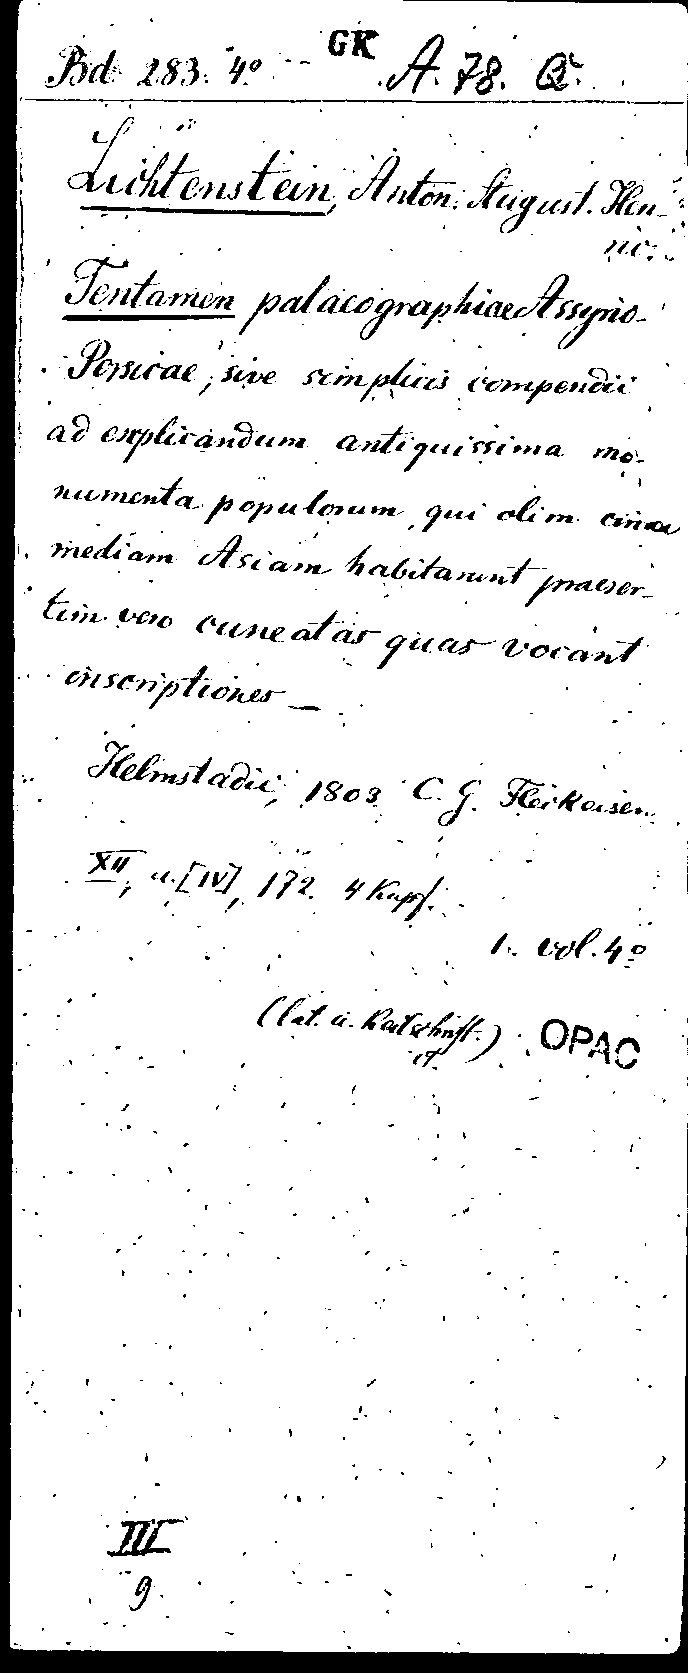 Bd 283. 4º GK A. 78. Q.
Lichtenstein, Anton. August. Hen-
ric.
Tentamen palaeographiae Assyrio-
Persicae, sive simplicis compendii
ad explicandum antiquissima mo-
numenta populorum, qui olim circa
mediam Asiam habitarunt praeser-
tim vero cuneatas quas vocant
inscriptiones —
Helmstadii, 1803 C. G. Fleckeisen.
XII, u. [IV], 172. 4 Kupf.
1. vol. 4º
(lat. u. Keilschrift.) OPAC
III
9.